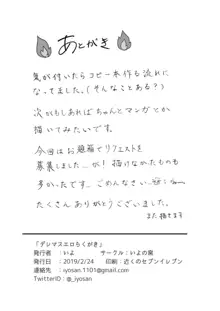 あとがき
気が付いたらコピー本作る流れに
なってました。(そんなことある?)
次がもしあればちゃんとマンガとか
描いてみたいです。
今回はお題箱でリクエストを
募集しました…が!描けなかったものも
多かったです…ごめんなさい…
たくさんありがとうございました。
また描きます
「デレマスエロらくがき」
発行者:いよ サークル:いよの巣
発行日:2019/2/24 印刷:近くのセブンイレブン
連絡先 :iyosan.1101@gmail.com
TwitterID:@_iyosan